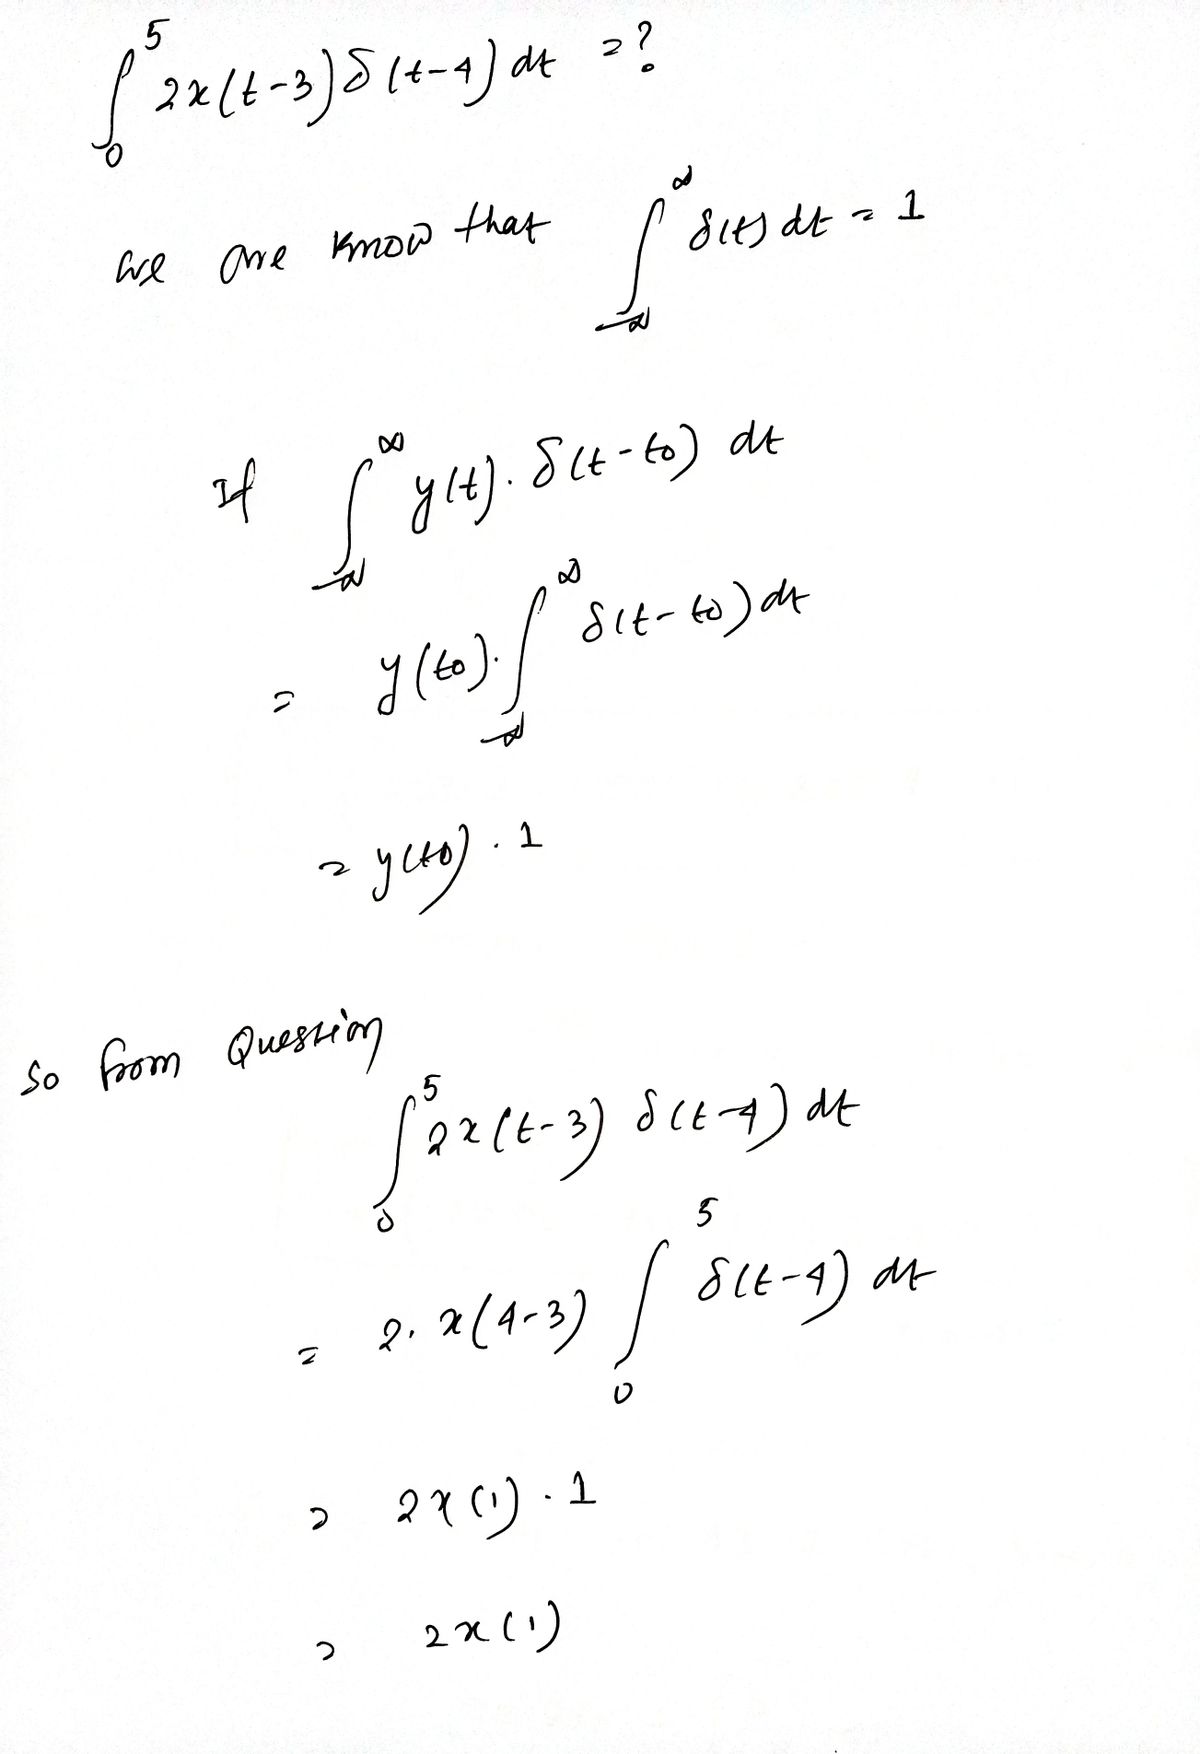 ∫₀⁵ 2x(t-3) δ(t-4) dt = ?
we are know that ∫₋∞^∞ δ(t) dt = 1
If ∫₋∞^∞ y(t). δ(t-to) dt
= y(to). ∫₋∞^∞ δ(t-to) dt
= y(to) . 1
So from Question
∫₀⁵ 2x(t-3) δ(t-4) dt
= 2. x(4-3) ∫₀⁵ δ(t-4) dt
= 2x(1) . 1
= 2x(1)